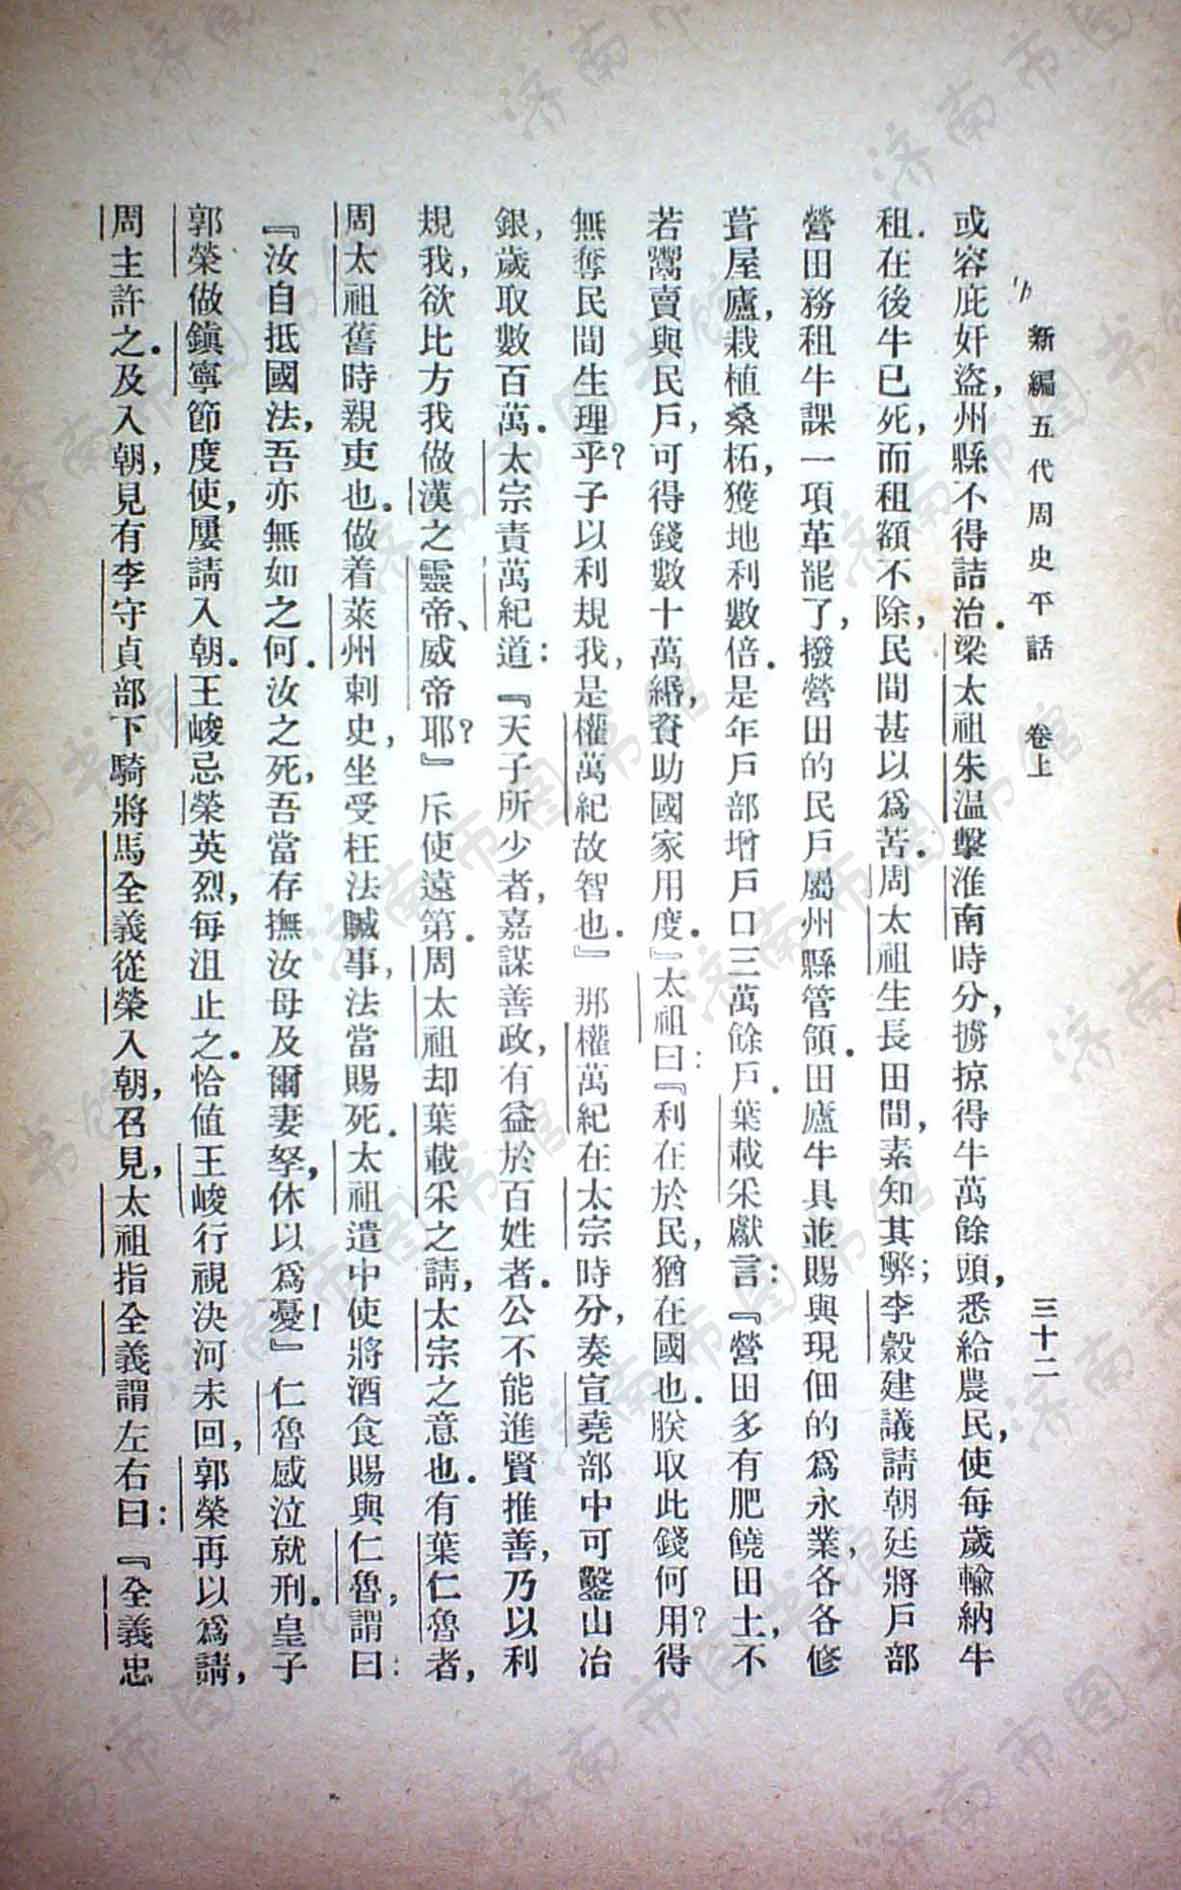 新編五代周史平話　卷上　三十二
或容庇奸盜，州縣不得詰治．梁太祖朱温擊淮南時分，擄掠得牛萬餘頭，悉給農民，使每歲輸納牛
租．在後牛已死，而租額不除，民間甚以爲苦．周太祖生長田間，素知其弊；李穀建議請朝廷將戶部
營田務租牛課一項革罷了，撥營田的民戶屬州縣管領．田廬牛具並賜與現佃的爲永業，各各修
葺屋廬，栽植桑柘，獲地利數倍．是年戶部增戶口三萬餘戶．葉載采獻言：『營田多有肥饒田土，不
若鬻賣與民戶，可得錢數十萬緡，資助國家用度．』太祖曰：『利在於民，猶在國也．朕取此錢何用？得
無奪民間生理乎？子以利規我，是權萬紀故智也．』那權萬紀在太宗時分，奏宣堯部中可鑿山冶
銀，歲取數百萬．太宗責萬紀道：『天子所少者，嘉謀善政，有益於百姓者．公不能進賢推善，乃以利
規我，欲比方我做漢之靈帝、威帝耶？』斥使遠第．周太祖却葉載采之請，太宗之意也．有葉仁魯者，
周太祖舊時親吏也．做着萊州刺史，坐受枉法贓事，法當賜死．太祖遣中使將酒食賜與仁魯，謂曰：
『汝自抵國法，吾亦無如之何．汝之死，吾當存撫汝母及爾妻孥，休以爲憂！』仁魯感泣就刑．皇子
郭榮做鎮寧節度使，屢請入朝．王峻忌榮英烈，每沮止之．恰值王峻行視決河未回，郭榮再以爲請，
周主許之．及入朝，見有李守貞部下騎將馬全義從榮入朝，召見，太祖指全義謂左右曰：『全義忠